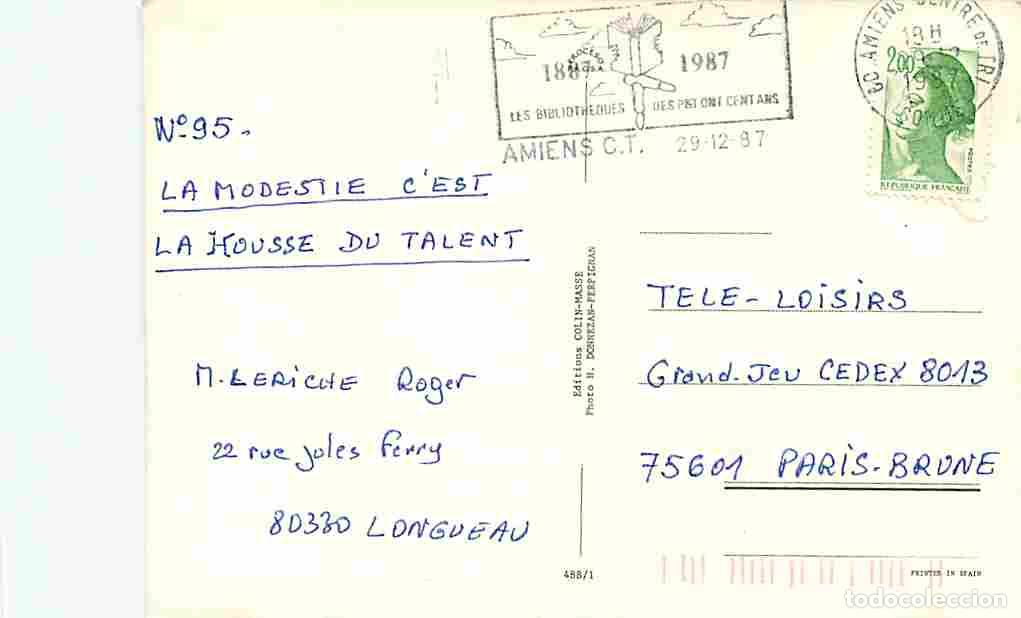 1887 1987
LES BIBLIOTHEQUES DES PTT ONT CENT ANS
AMIENS C.T. 29-12-87
80 AMIENS CENTRE DE TRI
19H
1987
SOMME
2,00
POSTES
REPUBLIQUE FRANÇAISE
N° 95.
LA MODESTIE C'EST
LA HOUSSE DU TALENT
M. LERICHE Roger
22 rue jules Ferry
80330 LONGUEAU
Editions COLIN-MASSE
Photo H. DONNEZAN-PERPIGNAN
TELE-LOISIRS
Grand-Jeu CEDEX 8013
75601 PARIS-BRUNE
488/1
PRINTED IN SPAIN
todocoleccion